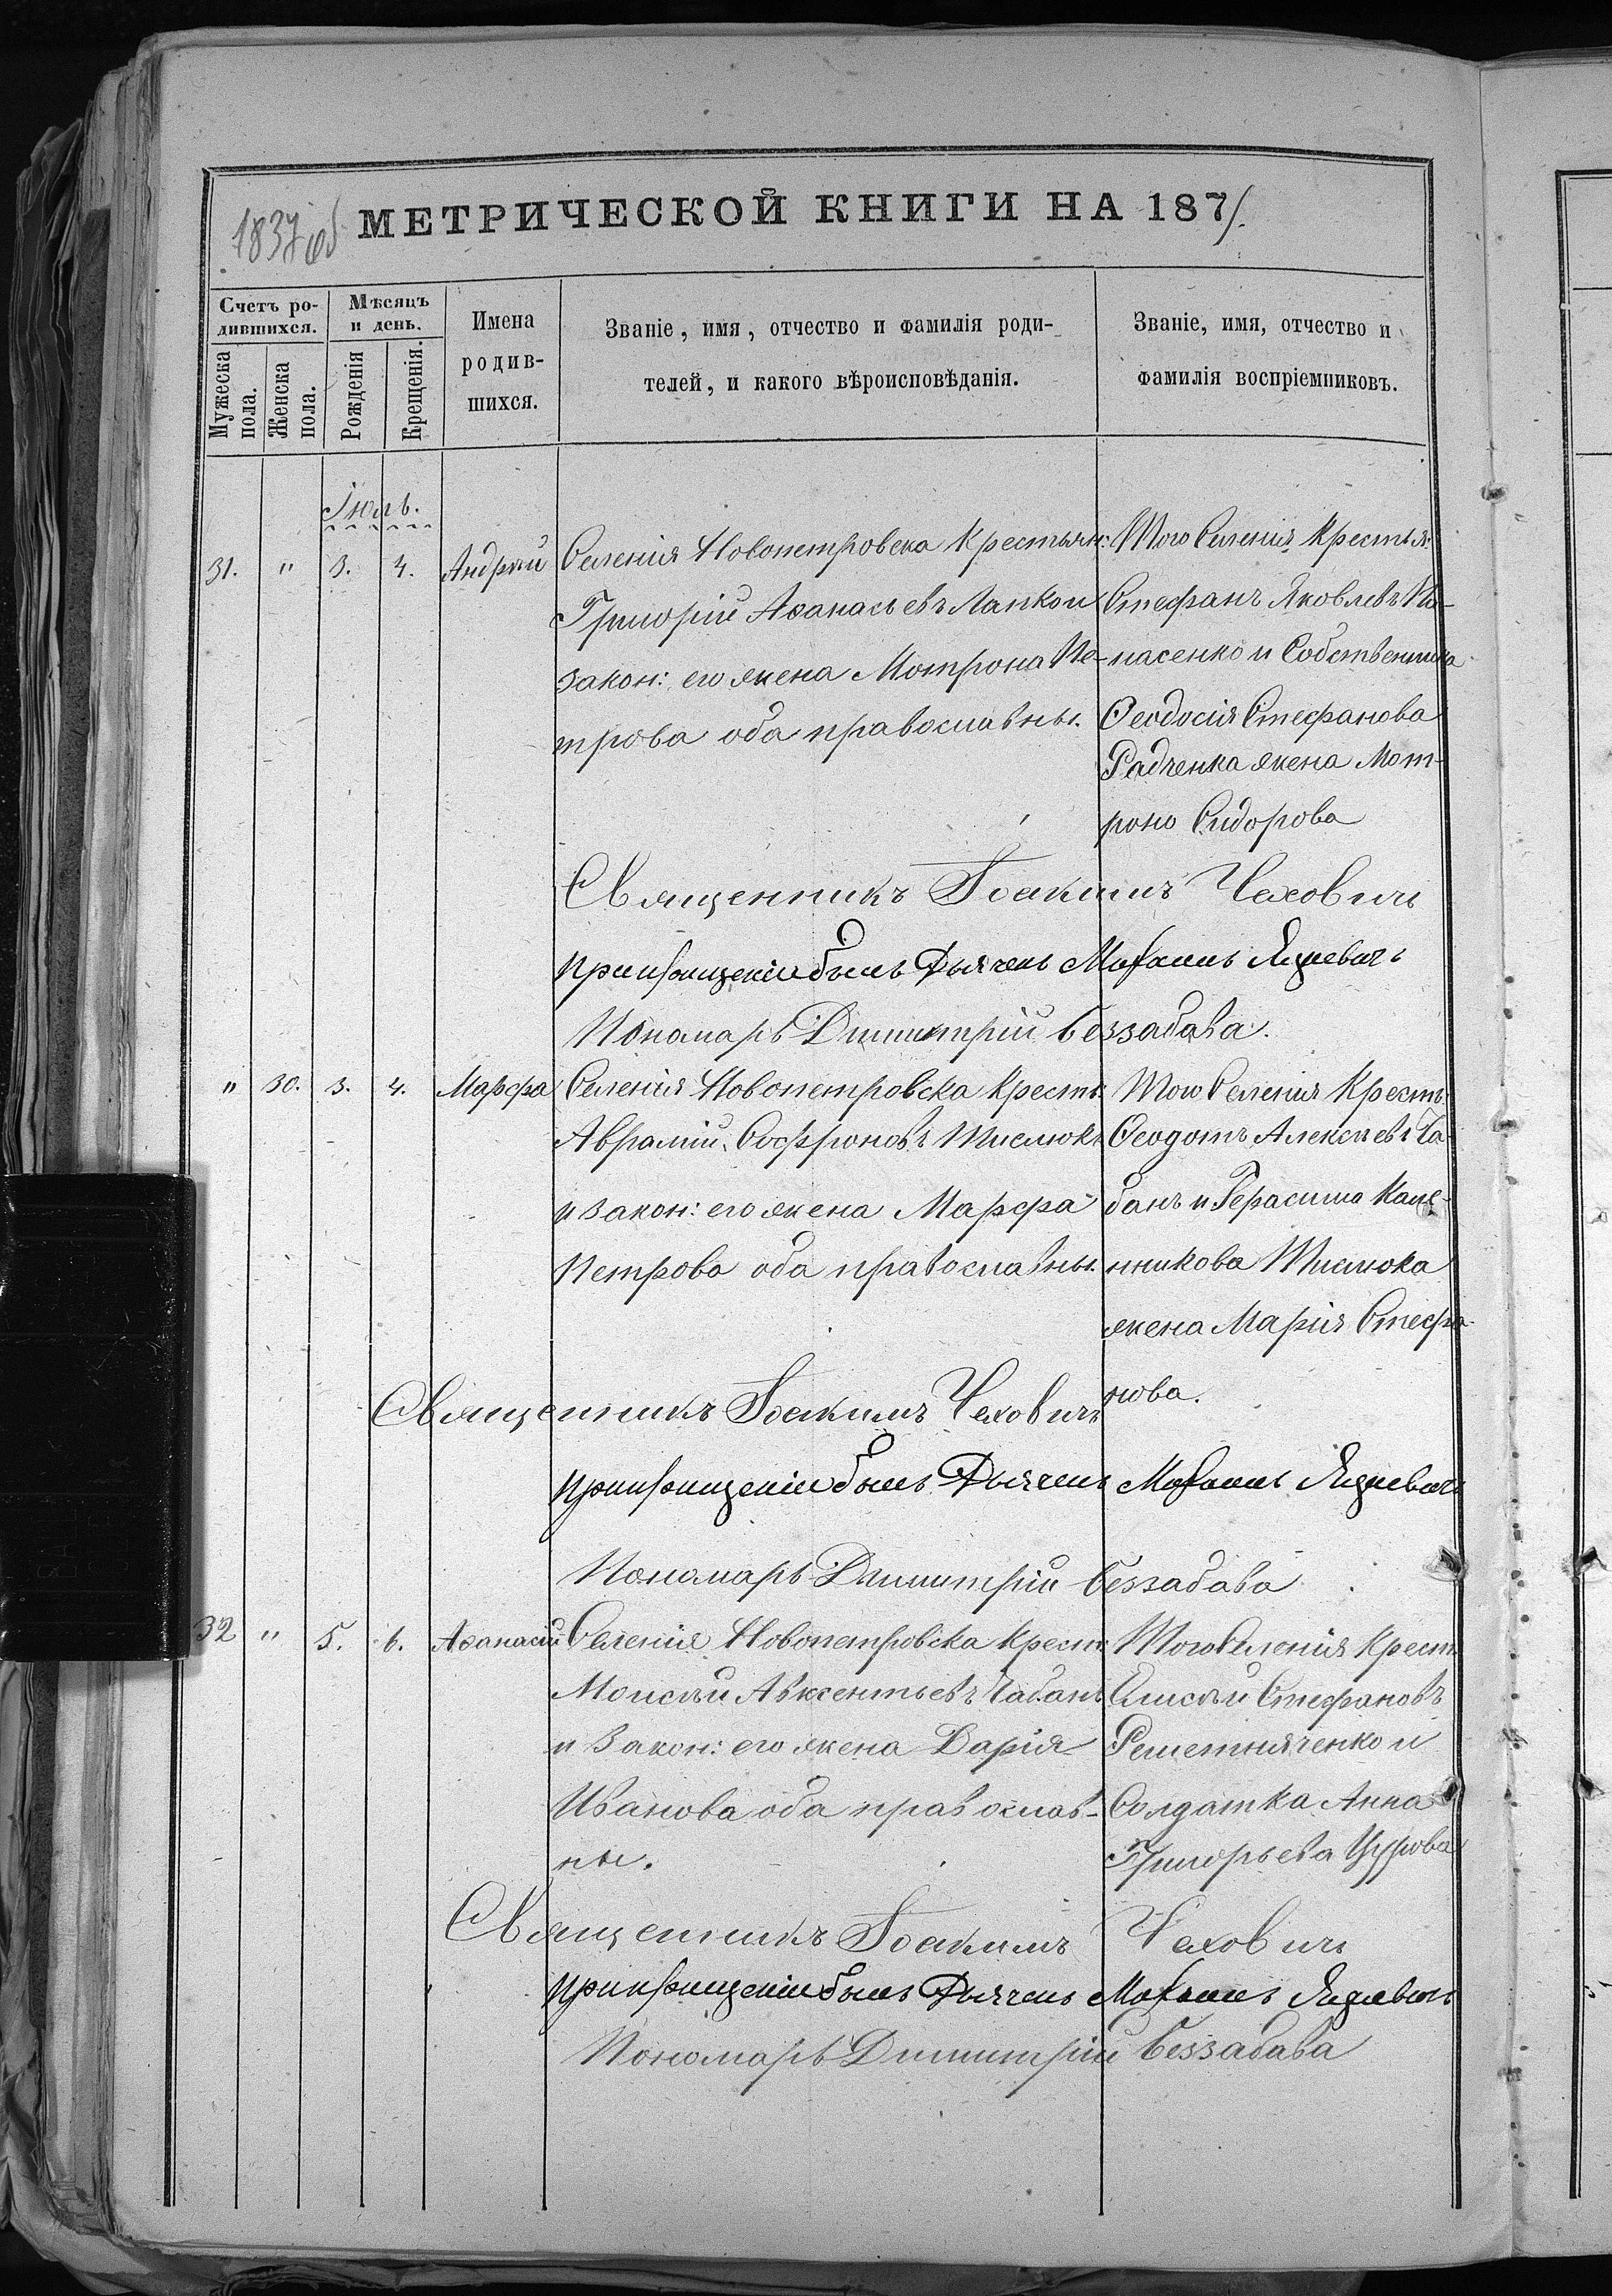 1837 об
МЕТРИЧЕСКОЙ КНИГИ НА 1871.
Счетъ ро-
дившихся.
Мужеска
пола.
Женска
пола.
Мѣсяцъ
и день.
Рожденія
Крещенія.
Имена
родив-
шихся.
Званіе, имя, отчество и фамилія роди-
телей, и какого вѣроисповѣданія.
Званіе, имя, отчество и
фамилія воспріемниковъ.
Іюль.
31. " 3. 4. Андрей
Селенія Новопетровска Крестьян:
Григорій Аѳанасьевъ Лапко и
закон: его жена Мотрона Пе-
трова оба православны.
Того Селенія Крестья:
Стефанъ Яковлевъ
пасенко и Собственника
Ѳеодосія Стефанова
Радченка жена Мот-
рона Сидорова
Священникъ Іоакимъ Чехович
При крещеніи былъ Дьячекъ
Пономарь Димитрій Беззабава.
" 30. 3. 4. Марфа
Селенія Новопетровска Крестъ:
Аврамій Софроновъ Тислюкъ
и закон: его жена Марфа
Петрова оба православны.
Того Селенія Крестъ
Ѳеодотъ Алексѣевъ Ча-
банъ и Герасима
никова Тислюка
жена Марія Стефа-
нова.
Священникъ Іоакимъ Чеховичъ
При крещеніи былъ Дьячекъ
Пономарь Димитрій Беззабава
32 " 5. 6. Аѳанасій
Селенія Новопетровска Крест:
Моисей Авксентьевъ Чабанъ
и Закон: его жена Дарія
Иванова оба православ-
ны.
Того Селенія Крест.
Елисей Стефановъ
Решетняченко и
Солдатка Анна
Григорьева
Священникъ Іоакимъ Чехович
При крещеніи былъ Дьячекъ
Пономарь Димитрій Беззабава